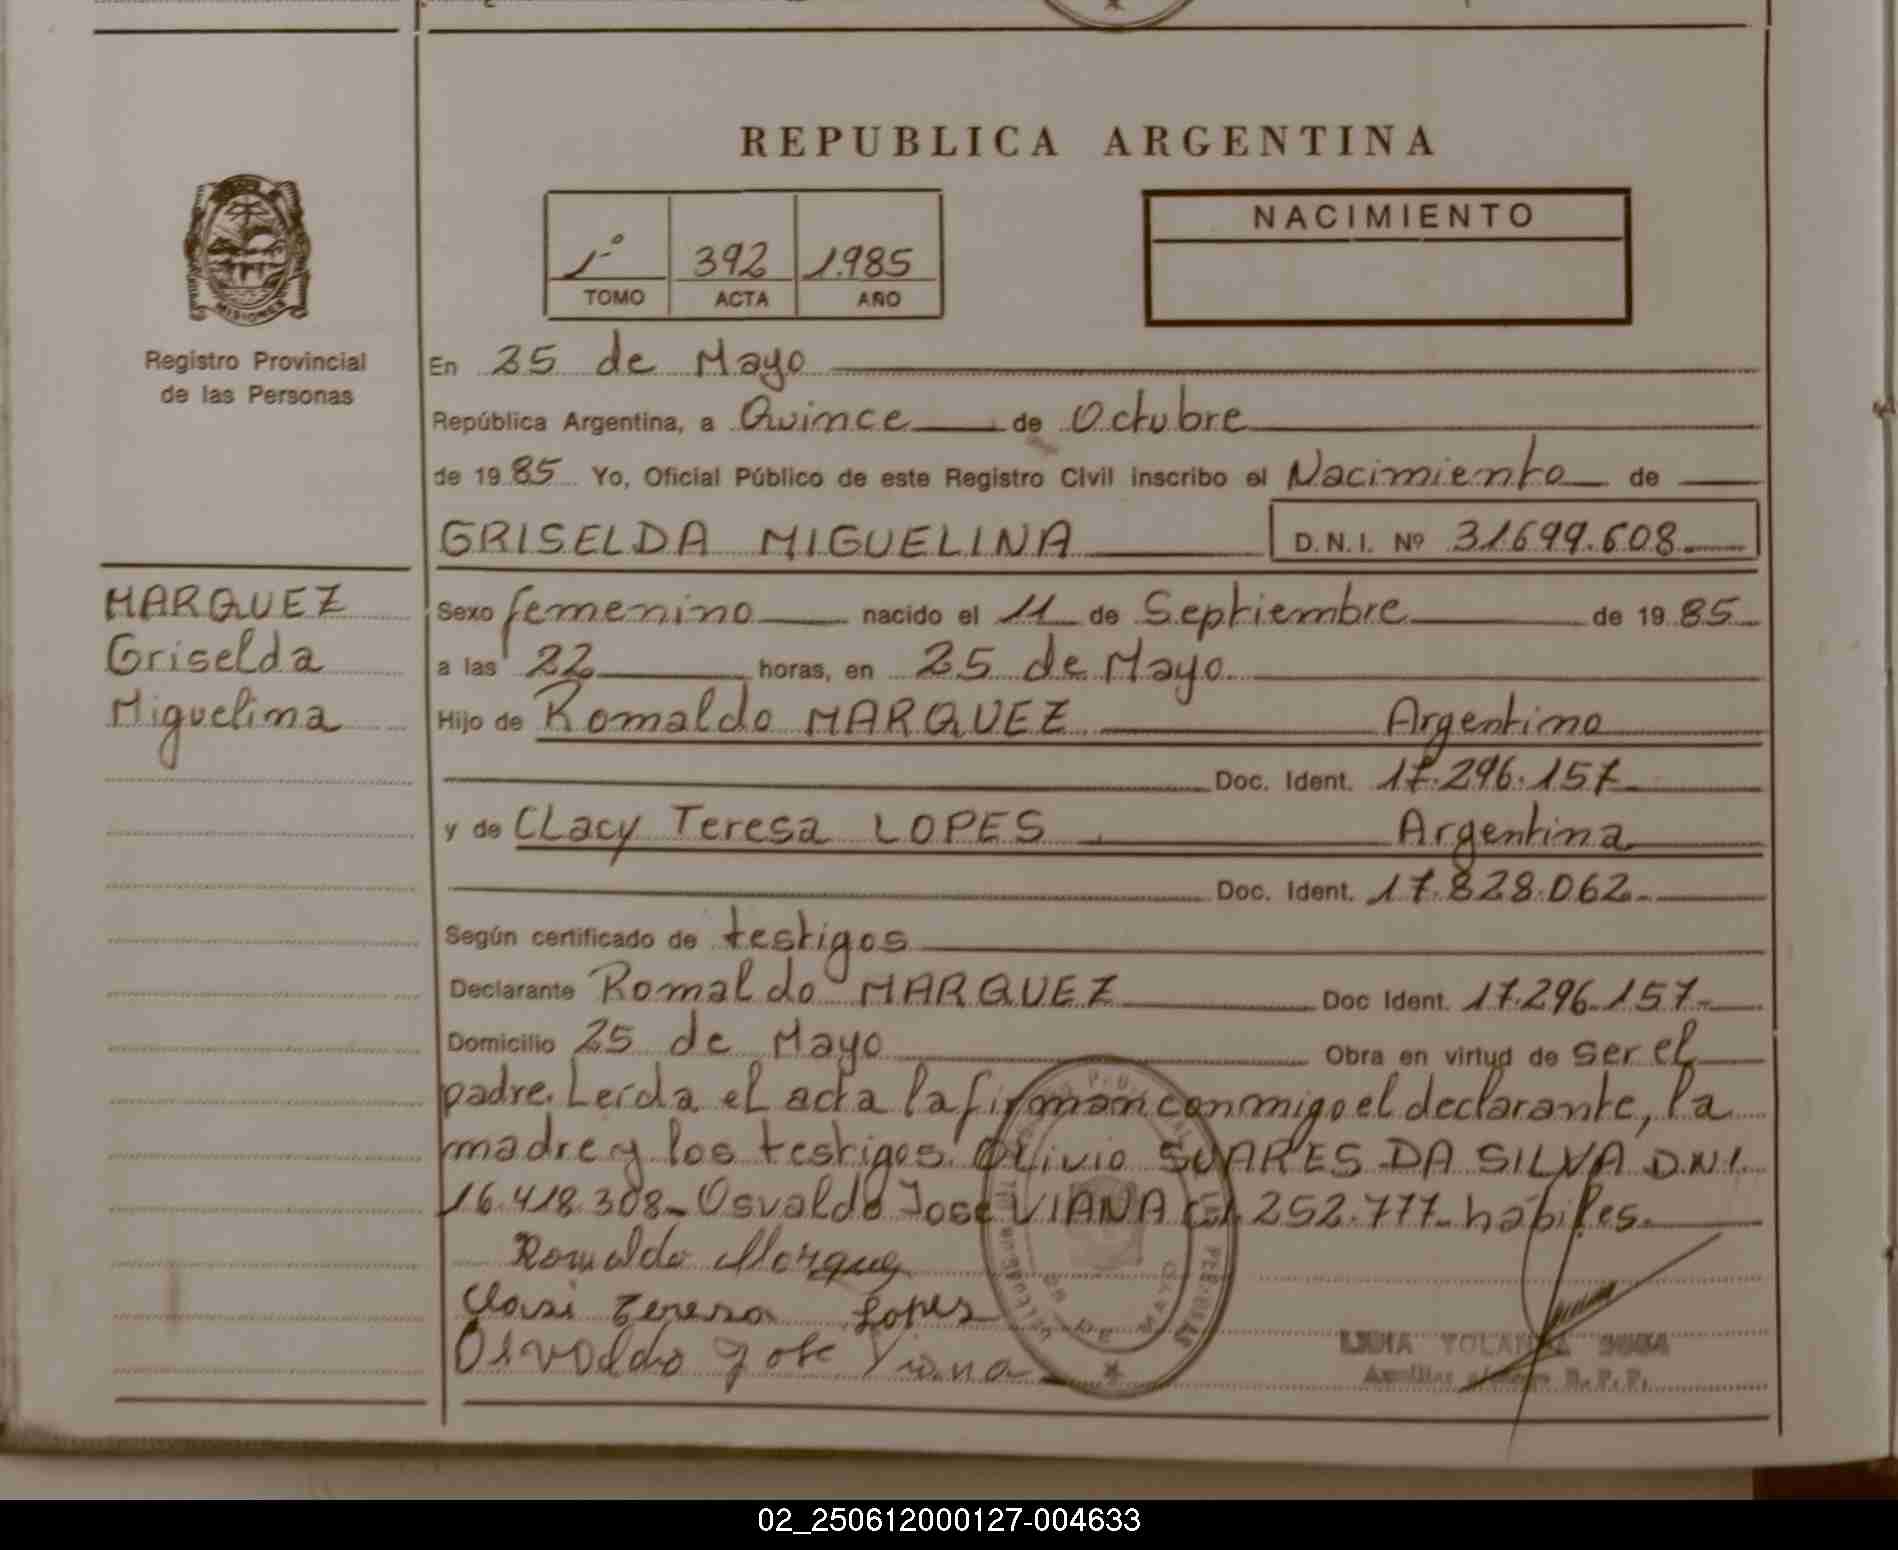 REPUBLICA ARGENTINA
1º 392 1.985
TOMO ACTA AÑO
NACIMIENTO
MISIONES
Registro Provincial
de las Personas
En 25 de Mayo
República Argentina, a Quince de Octubre
de 1985 Yo, Oficial Público de este Registro Civil inscribo el Nacimiento de
GRISELDA MIGUELINA D.N.I. Nº 31699.608
MARQUEZ
Griselda
Miguelina
Sexo femenino nacido el 11 de Septiembre de 1985
a las 22 horas, en 25 de Mayo
Hijo de Romaldo MARQUEZ Argentino
Doc. Ident. 17.296.157
y de CLacy Teresa LOPES Argentina
Doc. Ident. 17.828.062
Según certificado de testigos
Declarante Romaldo MARQUEZ Doc Ident. 17.296.157
Domicilio 25 de Mayo Obra en virtud de ser el
padre. Leída el acta la firman conmigo el declarante, la
madre y los testigos Olivio SUARES DA SILVA D.N.I.
16.418.308- Osvaldo José VIANA 252.777- hábiles.
Romaldo Marquez
Clasi Teresa Lopes
Osvaldo Jose Viana
DE MAYO
YOLANDA
Auxiliar
02_250612000127-004633